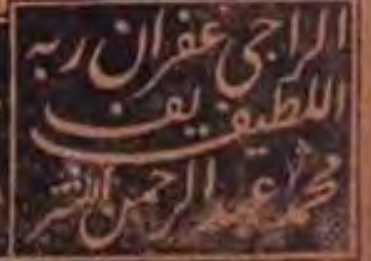 الراجي غفران ربه
اللطيف يف
محمد عبد الرحمن الشر